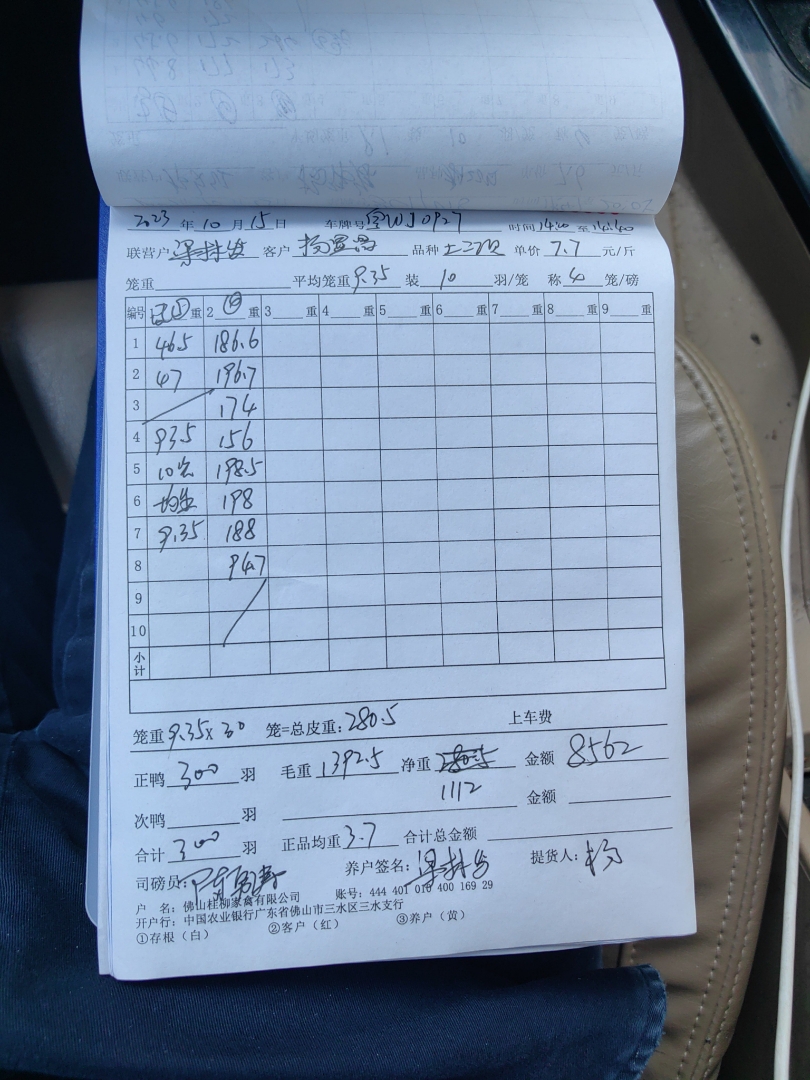 2023 年 10 月 15 日 车牌号 WJ0927 时间 14:20 至 14:40
联营户 梁林发 客户 杨置昌 品种 土二 单价 7.7 元/斤
笼重 平均笼重 9.35 装 10 羽/笼 称 4 笼/磅
编号 ⑤ 重 2 ④ 重 3 重 4 重 5 重 6 重 7 重 8 重 9 重
1 46.5 186.6
2 47 196.7
3 174
4 93.5 156
5 10只 198.5
6 均重 198
7 9.35 188
8 94.7
9
10
小计
笼重 9.35 x 30 笼=总皮重: 280.5 上车费
正鸭 300 羽 毛重 1392.5 净重 金额 8562
1112
次鸭 羽 金额
合计 300 羽 正品均重 3.7 合计总金额
司磅员: 养户签名: 梁林发 提货人: 杨
户 名: 佛山桂柳家禽有限公司 账号: 444 401 010 400 169 29
开户行: 中国农业银行广东省佛山市三水区三水支行
①存根（白） ②客户（红） ③养户（黄）